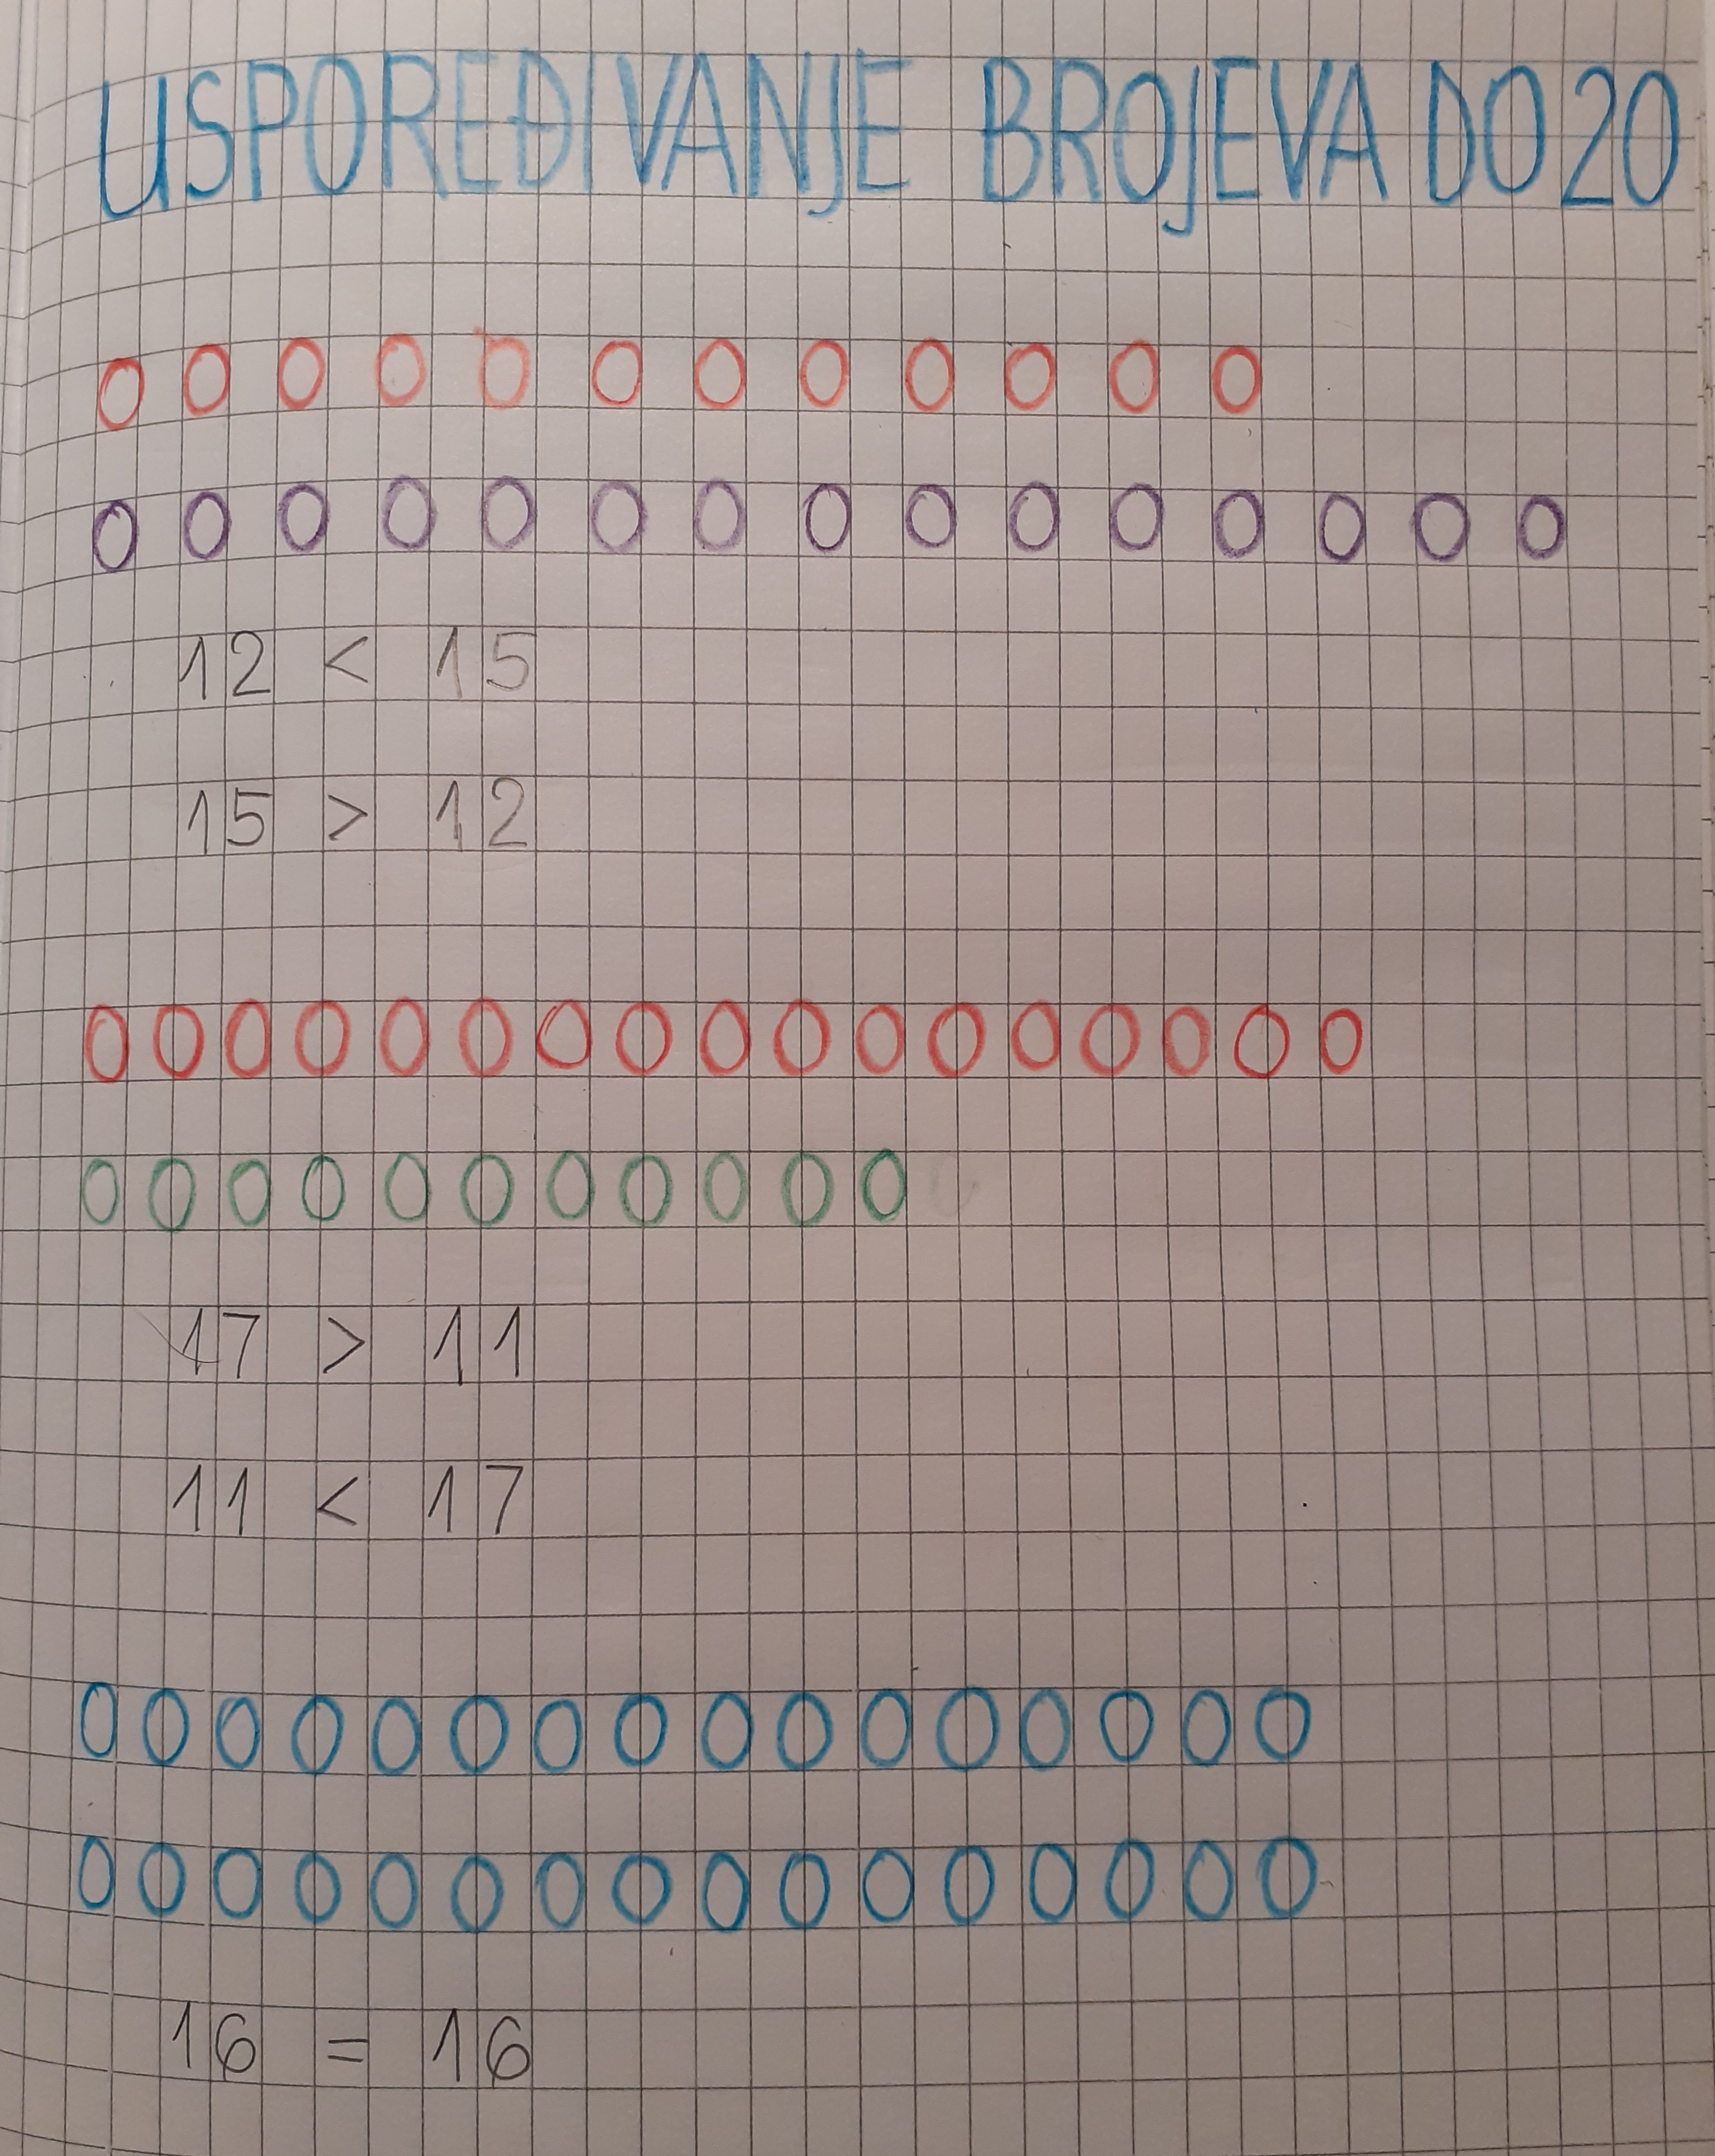 USPOREĐIVANJE BROJEVA DO 20
12 < 15
15 > 12
17 > 11
11 < 17
16 = 16